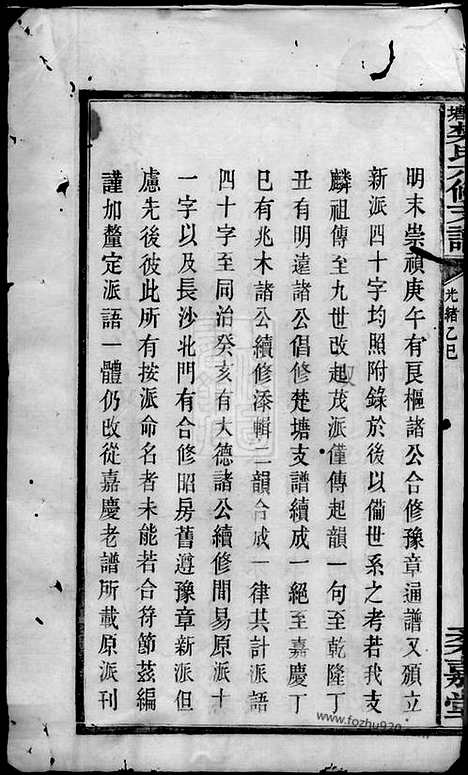 明末崇禎庚午有良樞諸公合修豫章通譜又頒立
新派四十字均照附錄於後以備世系之考若我支
麟祖傳至九世改起茂派僅傳起韻一句至乾隆丁
丑有明遠諸公倡修楚塘支譜續成一絕至嘉慶丁
巳有兆木諸公續修添輯二韻合成一律共計派語
四十字至同治癸亥有大德諸公續修間易原派十
一字以及長沙北門有合修昭房舊遵豫章新派一
慮先後彼此所有按派命名者未能若合符節茲編
謹加釐定派語一體仍改從嘉慶老譜所載原派刊
光緒乙巳
嘉堂
www.fozhu920.com